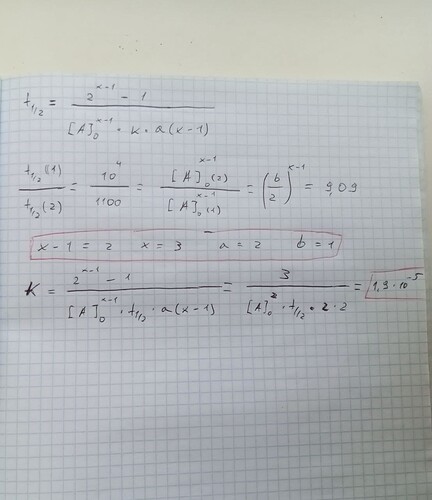 t₁/₂ = (2^(x-1) - 1) / ([A]₀^(x-1) · k · a(x-1))
t₁/₂(1) / t₁/₂(2) = 10⁴ / 1100 = [A]₀^(x-1)(2) / [A]₀^(x-1)(1) = (6/2)^(x-1) = 9,09
x-1 = 2 x = 3 a = 2 b = 1
K = (2^(x-1) - 1) / ([A]₀^(x-1) · t₁/₂ · a(x-1)) = 3 / ([A]₀² · t₁/₂ · 2 · 2) = 1,9 · 10⁻⁵